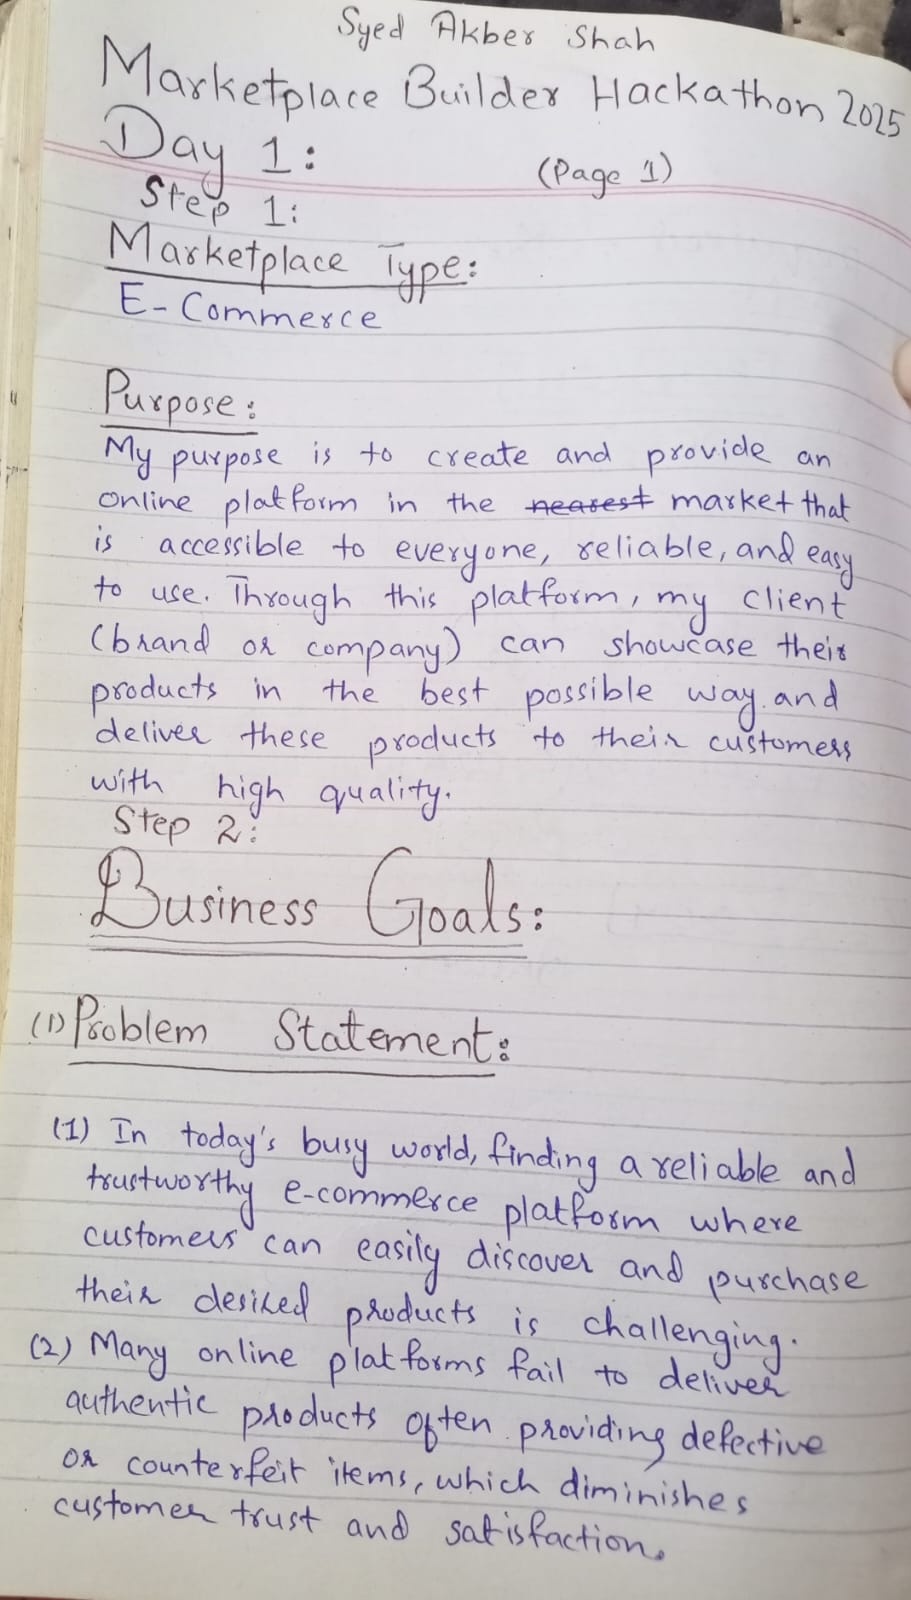 Syed Akber Shah
Marketplace Builder Hackathon 2025
Day 1:
(Page 1)
Step 1:
Marketplace Type:
E-Commerce
Purpose:
My purpose is to create and provide an
online platform in the nearest market that
is accessible to everyone, reliable, and easy
to use. Through this platform, my client
(brand or company) can showcase their
products in the best possible way. and
deliver these products to their customers
with high quality.
Step 2:
Business Goals:
(1) Problem Statement:
(1) In today's busy world, finding a reliable and
trustworthy e-commerce platform where
customers can easily discover and purchase
their desired products is challenging.
(2) Many online platforms fail to deliver
authentic products often providing defective
or counterfeit items, which diminishes
customer trust and satisfaction.